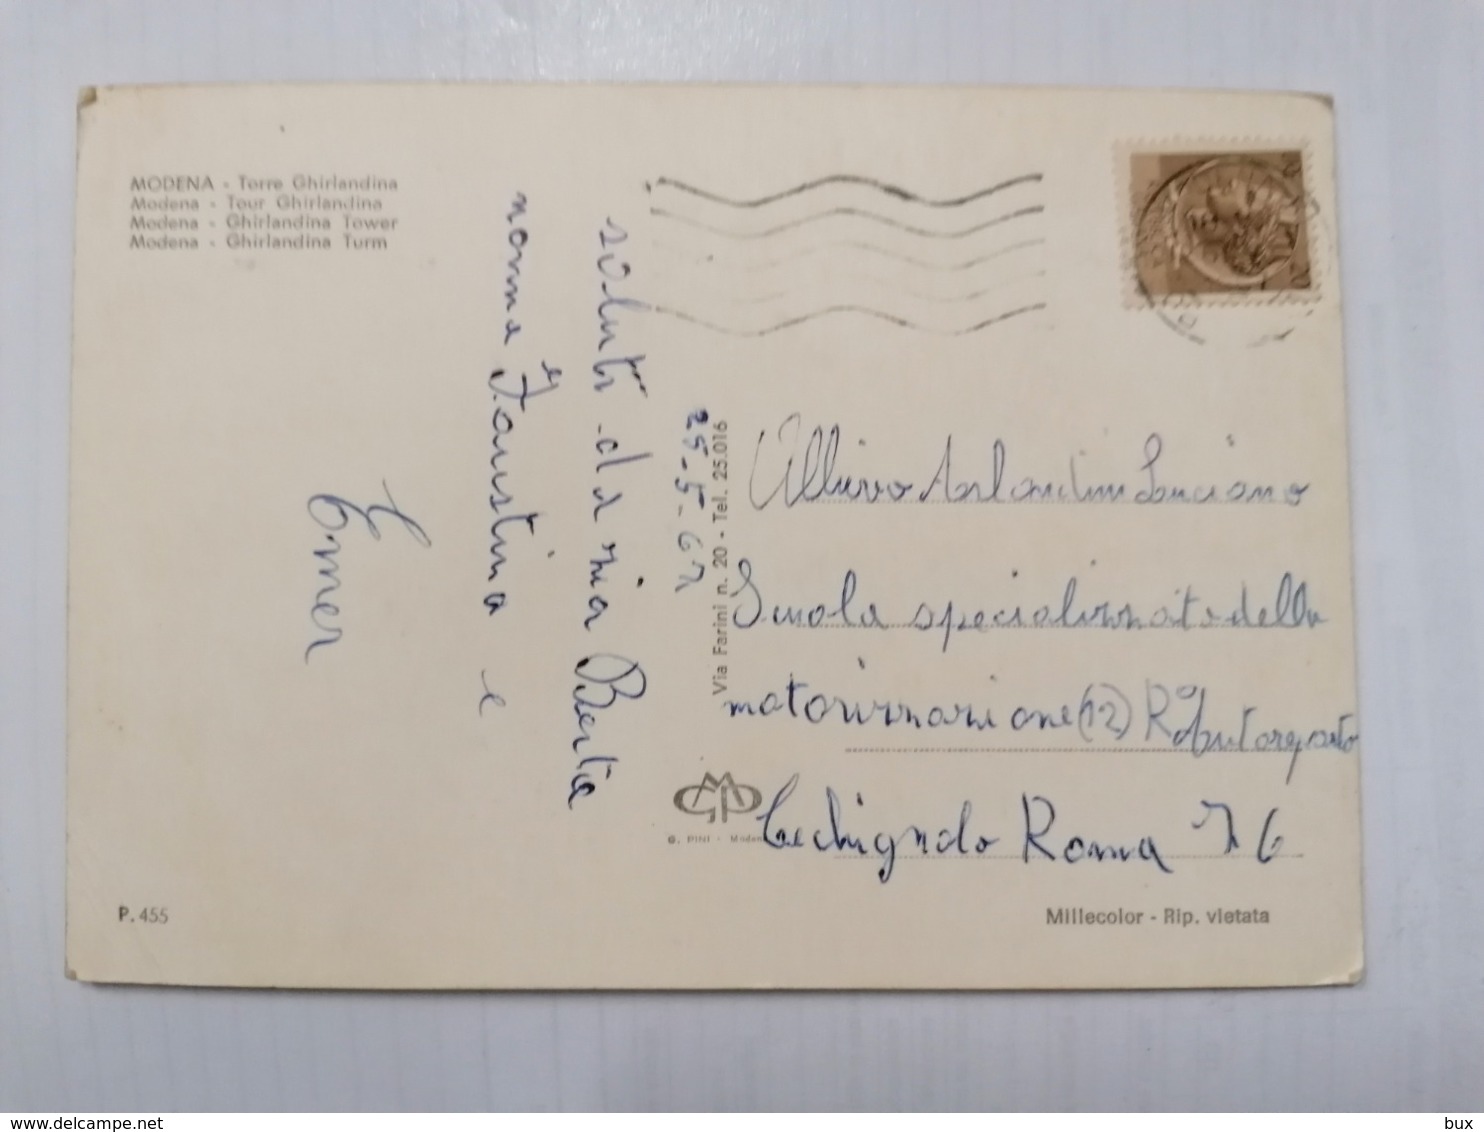 MODENA - Torre Ghirlandina
Modena - Tour Ghirlandina
Modena - Ghirlandina Tower
Modena - Ghirlandina Turm
saluti da zia Berta
nonna Faustina e
Emer
25-5-67
Via Farini n. 20 - Tel. 25.016
G. PINI - Modena
Allievo Arlandini Luciano
Scuola specializzato della
motorizzazione (12) Ro Autoreparto
Cechignolo Roma
P. 455
Millecolor - Rip. vietata
delcampe.net
bux